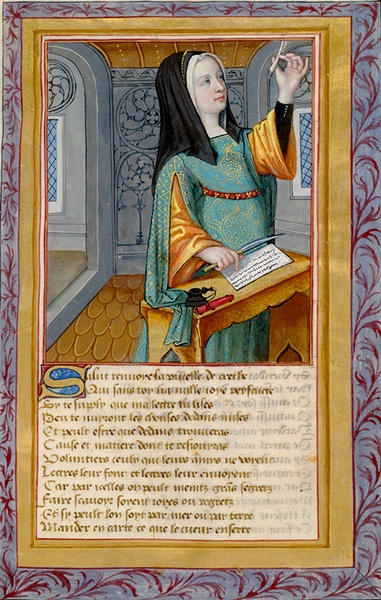 Salut renvoye la pucelle de crethe
Qui sans toy na nulle ioye perfaicte
Sy te supply que ma lettre tu lises
les choses dedans mises
Et peult estre que dedans trouveras
Cause et matiere dont te resiouyras
Voluntiers ceulx qui leurs amys ne
Lettres leur font et lettres leur envoyent
Car par icelles on peult mentz grans secretz
Faire scavoir soyent ioyes ou regretz
Et sy peult lon soyt par mer ou par terre
Mander en carte ce que le cueur enserre